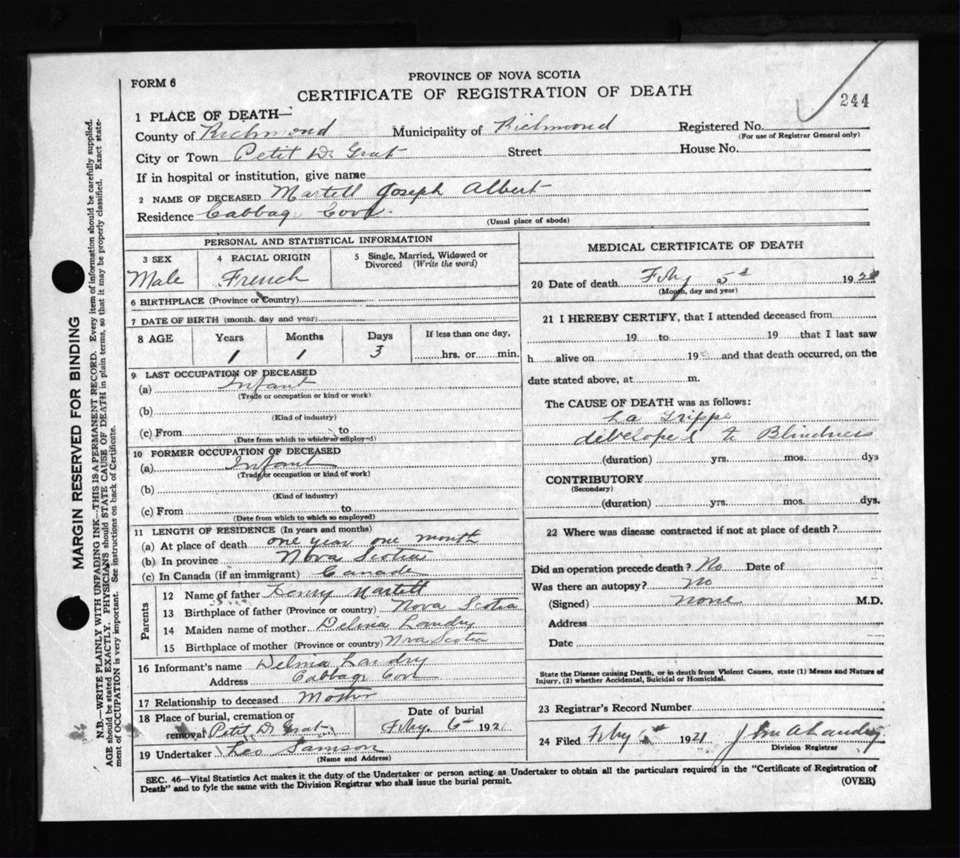 PROVINCE OF NOVA SCOTIA
FORM 6
CERTIFICATE OF REGISTRATION OF DEATH
244
1 PLACE OF DEATH—
County of Richmond Municipality of Richmond Registered No.
(For use of Registrar General only)
City or Town Petit De Grat Street House No.
If in hospital or institution, give name
2 NAME OF DECEASED Martell Joseph Albert
Residence Cabbage Cove.
(Usual place of abode)
MARGIN RESERVED FOR BINDING
N.B.—WRITE PLAINLY WITH UNFADING INK—THIS IS A PERMANENT RECORD. Every item of information should be carefully supplied.
AGE should be stated EXACTLY. PHYSICIANS should STATE CAUSE OF DEATH in plain terms, so that it may be properly classified. Exact state-
ment of OCCUPATION is very important. See instructions on back of Certificate.
PERSONAL AND STATISTICAL INFORMATION
3 SEX 4 RACIAL ORIGIN 5 Single, Married, Widowed or
Divorced (Write the word)
Male French
6 BIRTHPLACE (Province or Country)
7 DATE OF BIRTH (month, day and year)
8 AGE Years Months Days If less than one day,
1 1 3 hrs. or min.
9 LAST OCCUPATION OF DECEASED
(a) Infant
(Trade or occupation or kind or work)
(b)
(Kind of industry)
(c) From to
(Date from which to which so employed)
10 FORMER OCCUPATION OF DECEASED
(a) Infant
(Trade or occupation or kind of work)
(b)
(Kind of industry)
(c) From to
(Date from which to which so employed)
11 LENGTH OF RESIDENCE (In years and months)
(a) At place of death one year one month
(b) In province Nova Scotia
(c) In Canada (if an immigrant) Canada
Parents
12 Name of father Henry Martell
13 Birthplace of father (Province or country) Nova Scotia
14 Maiden name of mother Delma Landry
15 Birthplace of mother (Province or country) Nova Scotia
16 Informant's name Delma Landry
Address Cabbage Cove
17 Relationship to deceased Mother
18 Place of burial, cremation or Date of burial
removal Petit D Grat Feby. 6th 192
19 Undertaker Leo Samson
(Name and Address)
MEDICAL CERTIFICATE OF DEATH
20 Date of death Feby 5th 192
(Month, day and year)
21 I HEREBY CERTIFY, that I attended deceased from
19 to 19 that I last saw
h alive on 19 and that death occurred, on the
date stated above, at m.
The CAUSE OF DEATH was as follows:
La Grippe
developed to Blindness
(duration) yrs. mos. dys
CONTRIBUTORY
(Secondary)
(duration) yrs. mos. dys.
22 Where was disease contracted if not at place of death?
Did an operation precede death? No Date of
Was there an autopsy? No
(Signed) none M.D.
Address
Date
State the Disease causing Death, or in death from Violent Causes, state (1) Means and Nature of
Injury, (2) whether Accidental, Suicidal or Homicidal.
23 Registrar's Record Number
24 Filed Feby 6th 192 John A Landry
Division Registrar
SEC. 46—Vital Statistics Act makes it the duty of the Undertaker or person acting as Undertaker to obtain all the particulars required in the "Certificate of Registration of
Death" and to fyle the same with the Division Registrar who shall issue the burial permit. (OVER)